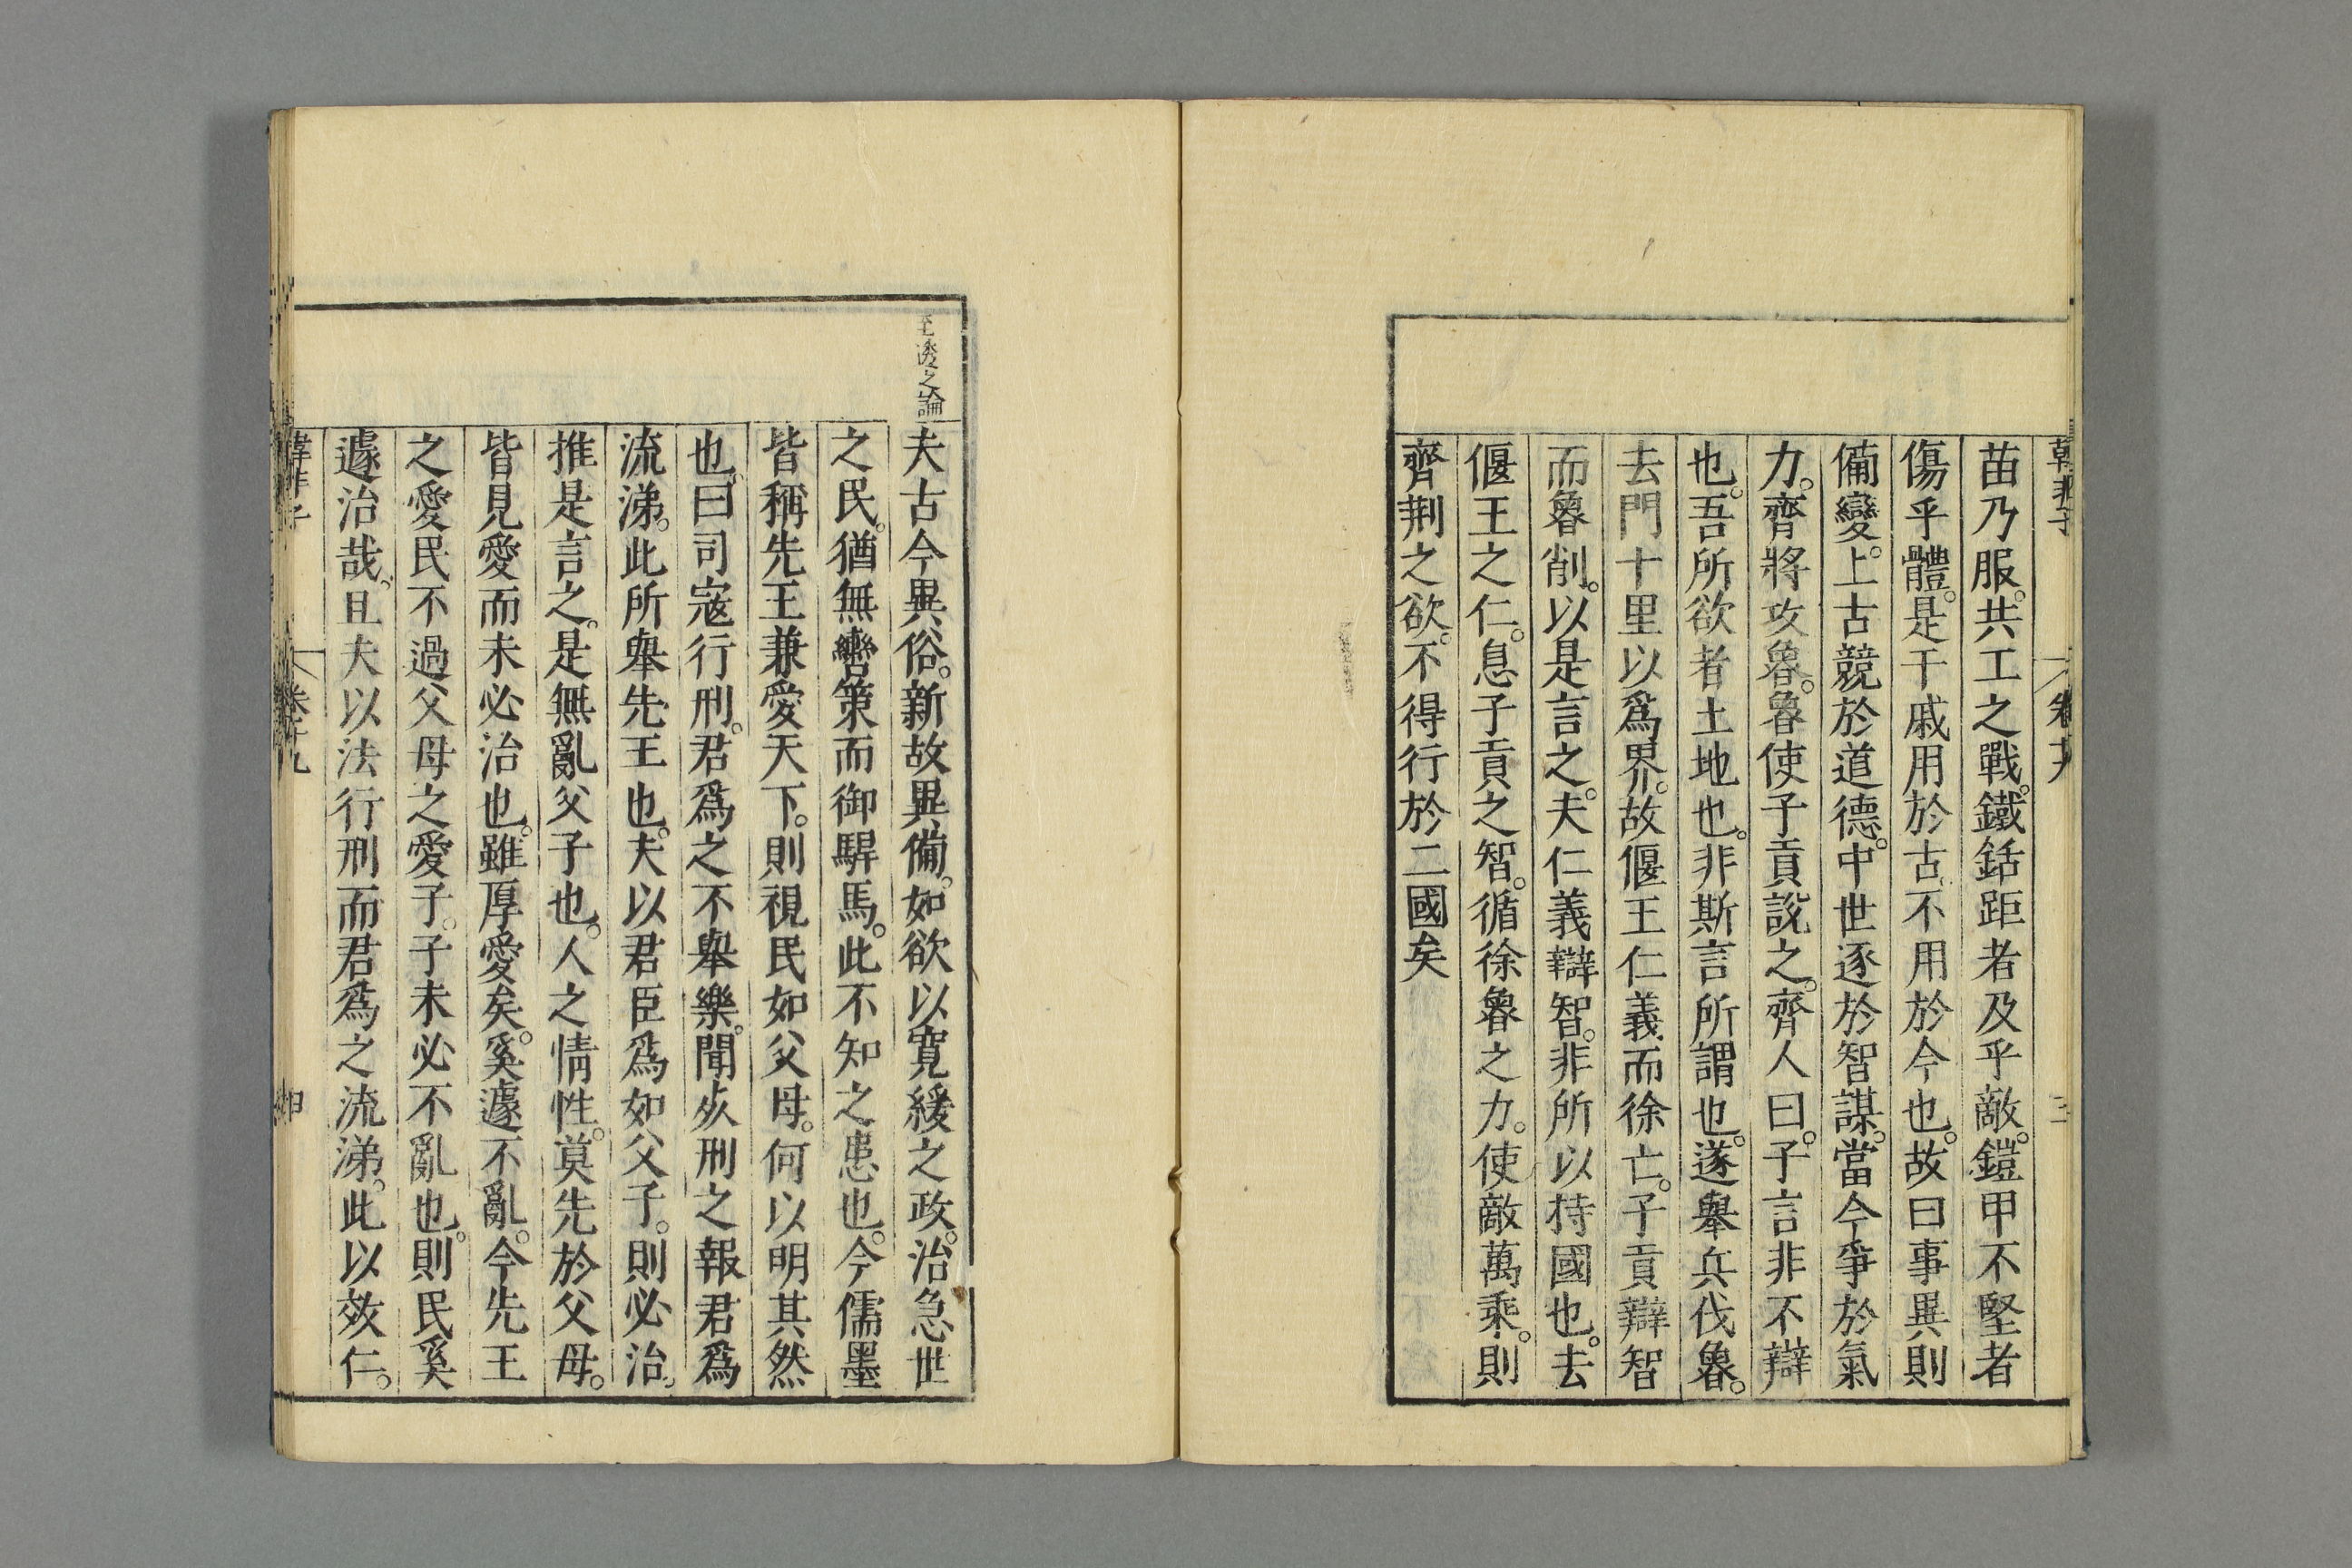 韓非子 卷十九 三
苗乃服。共工之戰。鐵銛距者及乎敵。鎧甲不堅者
傷乎體。是干戚用於古。不用於今也。故曰事異則
備變。上古競於道德。中世逐於智謀。當今爭於氣
力。齊將攻魯。魯使子貢說之。齊人曰。子言非不辯
也。吾所欲者土地也。非斯言所謂也。遂舉兵伐魯。
去門十里以爲界。故偃王仁義而徐亡。子貢辯智
而魯削。以是言之。夫仁義辯智。非所以持國也。去
偃王之仁。息子貢之智。循徐魯之力。使敵萬乘。則
齊荆之欲。不得行於二國矣
至透之論
夫古今異俗。新故異備。如欲以寬緩之政。治急世
之民。猶無轡策而御駻馬。此不知之患也。今儒墨
皆稱先王兼愛天下。則視民如父母。何以明其然
也。曰司寇行刑。君爲之不舉樂。聞死刑之報君爲
流涕。此所舉先王也。夫以君臣爲如父子。則必治。
推是言之。是無亂父子也。人之情性。莫先於父母。
皆見愛而未必治也。雖厚愛矣。奚遽不亂。今先王
之愛民不過父母之愛子。子未必不亂也。則民奚
遽治哉。且夫以法行刑而君爲之流涕。此以效仁。
韓非子 卷十九